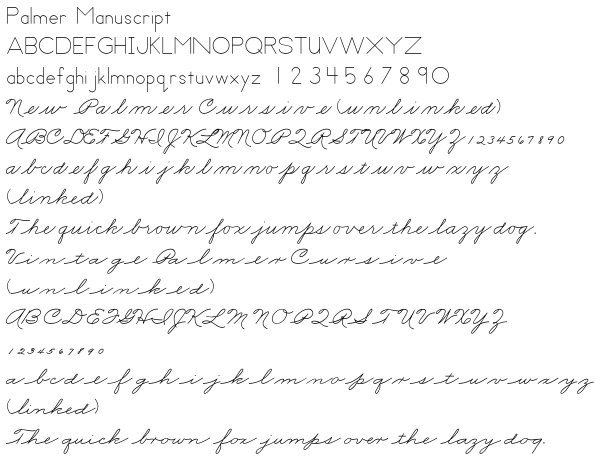 Palmer Manuscript
ABCDEFGHIJKLMNOPQRSTUVWXYZ
abcdefghijklmnopqrstuvwxyz 1234567890
New Palmer Cursive (unlinked)
ABCDEFGHIJKLMNOPQRSTUVWXYZ 1234567890
abcdefghijklmnopqrstuvwxyz
(linked)
The quick brown fox jumps over the lazy dog.
Vintage Palmer Cursive
(unlinked)
ABCDEFGHIJKLMNOPQRSTUVWXYZ
1234567890
abcdefghijklmnopqrstuvwxyz
(linked)
The quick brown fox jumps over the lazy dog.